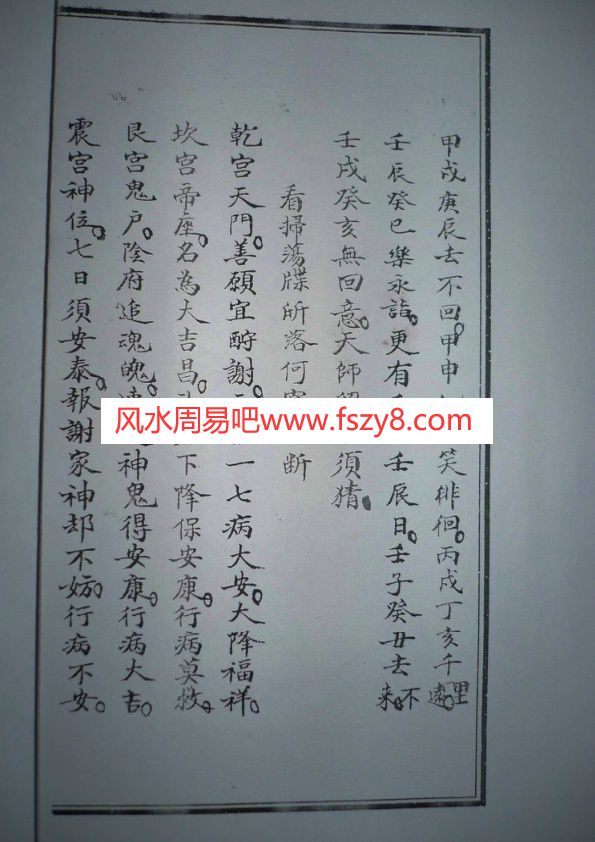 甲戌庚辰去不回。甲申笑徘徊。丙戌丁亥千里遠。
壬辰癸巳樂永詣。更有壬辰日。壬子癸丑去不来。
壬戌癸亥無回意。天師須猜。
看掃蕩牒所落何宮断
乾宮天門。善願宜酧謝。一七病大安。大降福祥。
坎宮帝座。名為大吉昌。下降保安康。行病莫救。
艮宮鬼户。陰府追魂魄。神鬼得安康。行病大吉。
震宮神位。七日須安泰。報謝家神却不妨。行病不安。
风水周易吧www.fszy8.com
www.fszy8.com